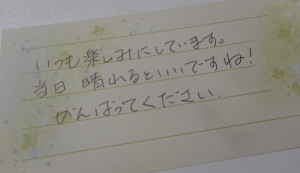 いつも楽しみにしています。
当日 晴れるといいですね!
がんばってください